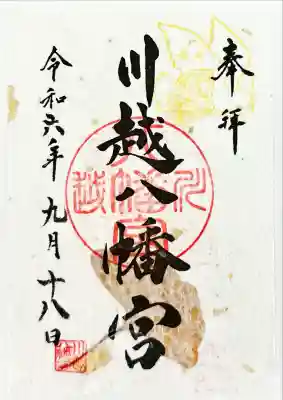 奉拝
川越八幡宮
令和六年九月十八日